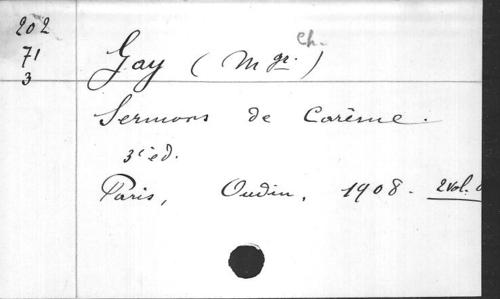 202
71
3
Gay (Mgr. Ch.)
Sermons de Carême.
3e éd.
Paris, Oudin, 1908. 2 vol.